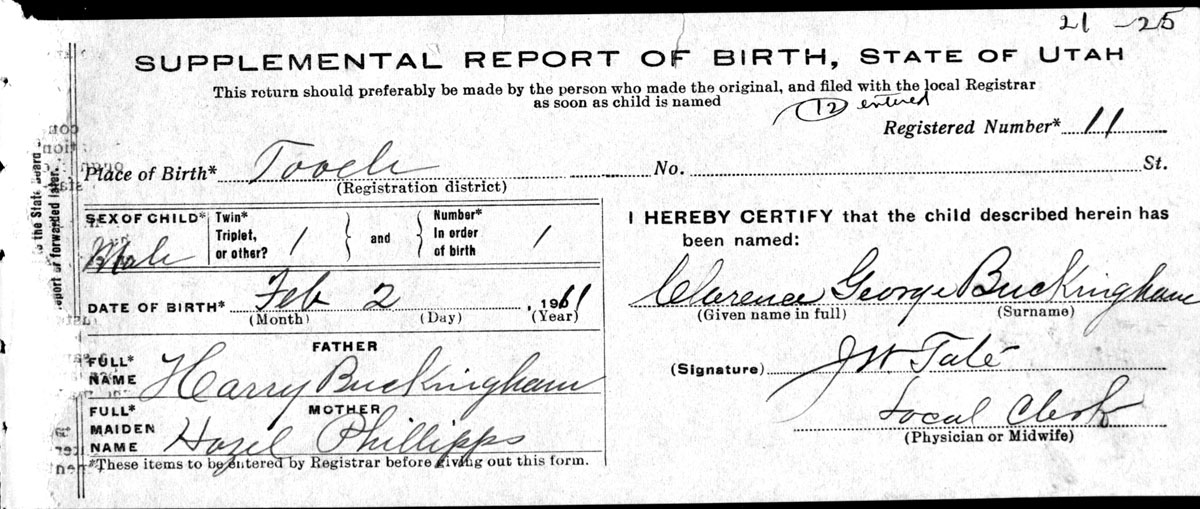 21 - 25
SUPPLEMENTAL REPORT OF BIRTH, STATE OF UTAH
This return should preferably be made by the person who made the original, and filed with the local Registrar
as soon as child is named
(12) entered
Registered Number* 11
Place of Birth* Tooele No. St.
(Registration district)
SEX OF CHILD* Male
Twin* Triplet, or other? 1 } and { Number* In order of birth 1
DATE OF BIRTH* Feb 2, 1911
(Month) (Day) (Year)
FATHER
FULL* NAME Harry Buckingham
MOTHER
FULL* MAIDEN NAME Hazel Phillipps
*These items to be entered by Registrar before giving out this form.
I HEREBY CERTIFY that the child described herein has
been named:
Clarence George Buckingham
(Given name in full) (Surname)
(Signature) J W Tate
Local Clerk
(Physician or Midwife)
the State Board
report or forwarded later.